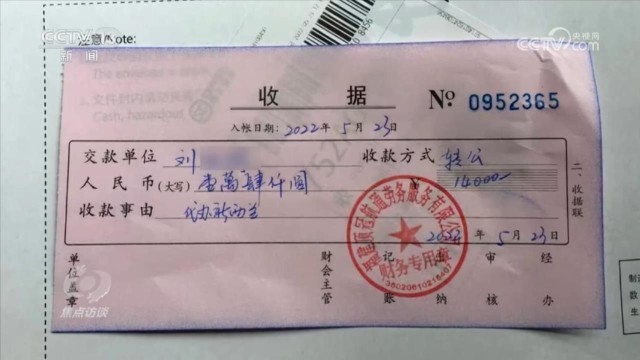 CCTV
新闻
注意Note:
央视网
CCTV.com
收据
№ 0952365
入帐日期：2022年5月23日
交款单位 刘 收款方式 转公
人民币(大写) 壹萬肆仟圆 14000—
收款事由 代办新西兰
2022年5月23日
二、收据联
财务专用章
单位盖章 财会主管 记账 出纳 审核 经办
焦点访谈